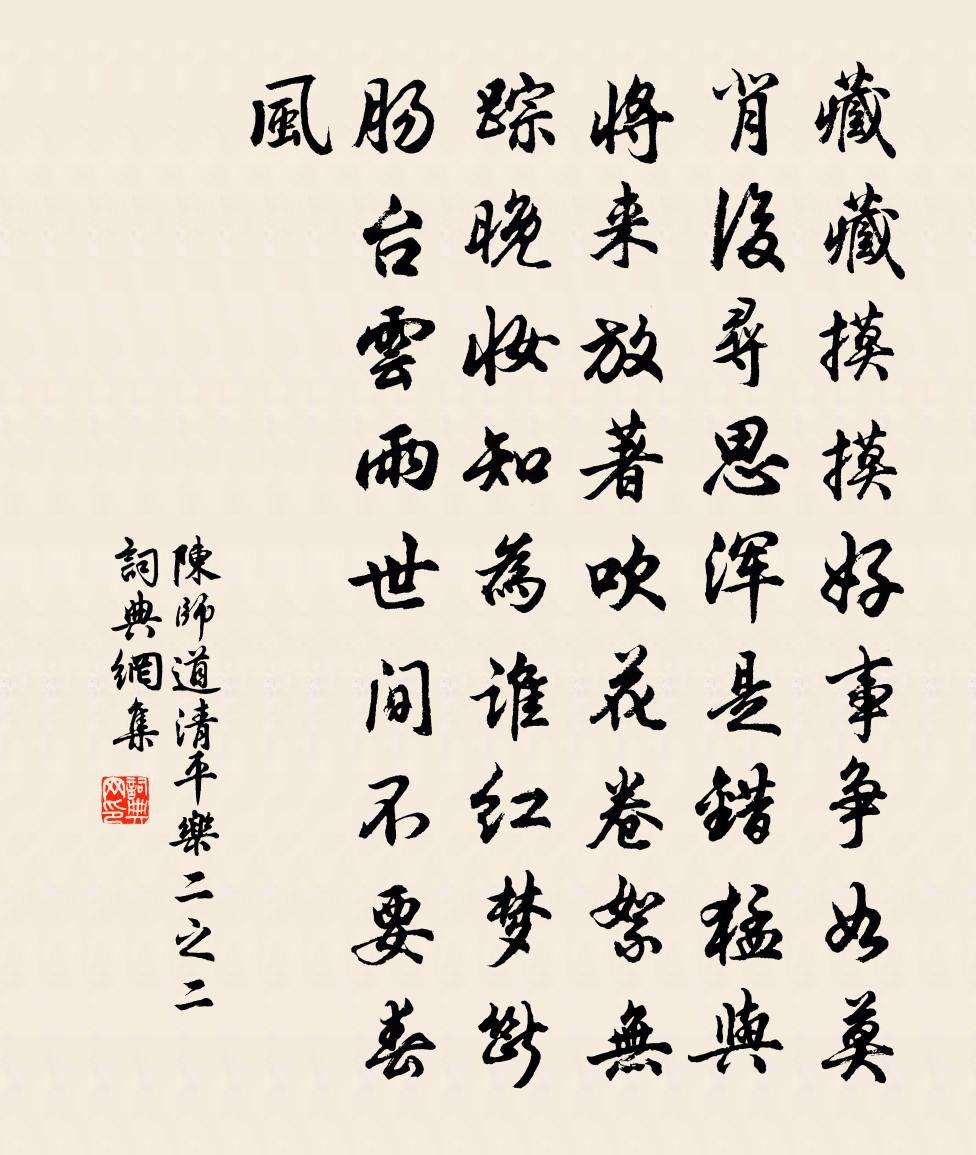 藏藏摸摸好事争如莫
背後尋思浑是錯猛與
將来放著吹花卷絮無
踪晚妆知為誰红梦斷
肠台雲雨世间不要春
風
陳師道清平樂二之二
詞典網集
詞典网印